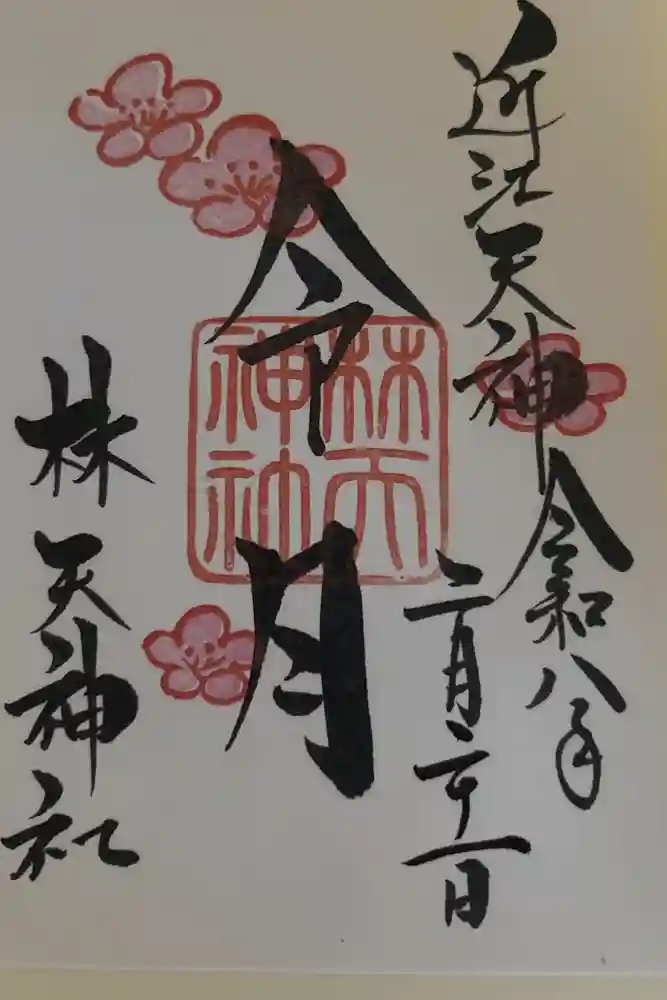 近江天神
令和八年
二月二十一日
令月
林天神
神社
林天神社